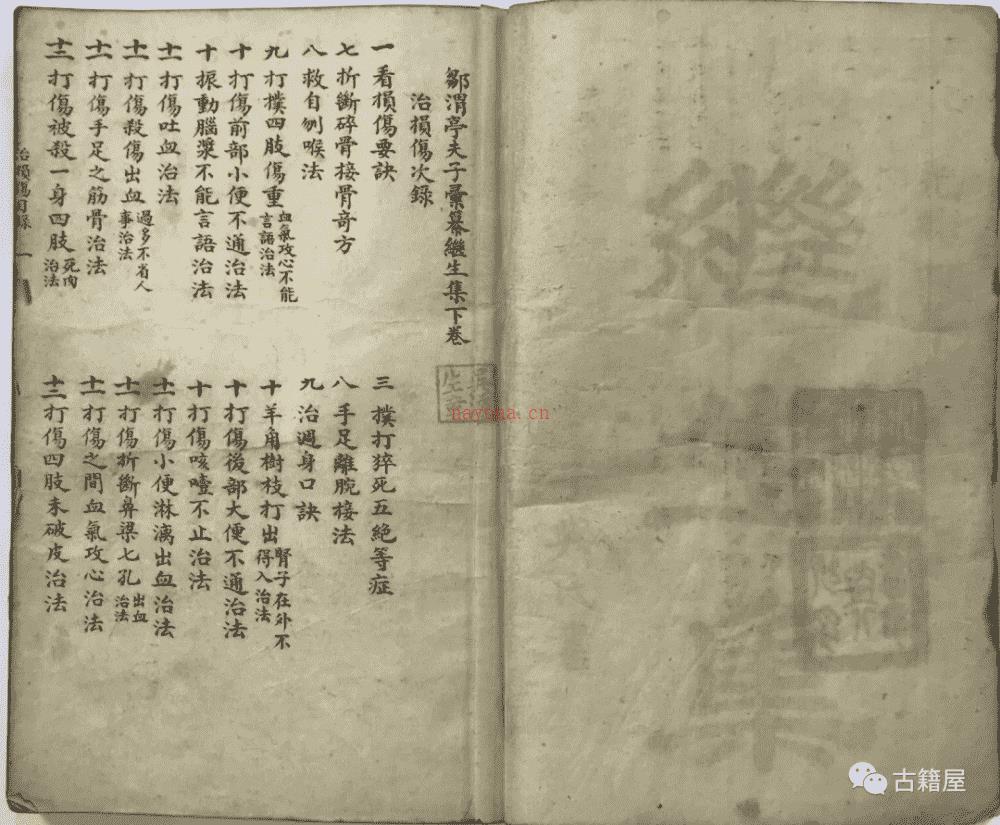 鄒渭亭夫子彙纂繼生集下卷
治損傷次錄
一 看損傷要訣
三 撲打猝死五絕等症
七 折斷碎骨接骨奇方
八 手足離腕接法
八 救自刎喉法
九 治週身口訣
九 打撲四肢傷重 血氣攻心不能言語治法
十 羊角樹枝打出 腎子在外不得入治法
十 打傷前部小便不通治法
十 打傷後部大便不通治法
十 振動腦漿不能言語治法
十 打傷咳噎不止治法
十一 打傷吐血治法
十一 打傷小便淋漓出血治法
十一 打傷殺傷出血 過多不省人事治法
十一 打傷折斷鼻梁七孔 出血治法
十一 打傷手足之筋骨治法
十一 打傷之間血氣攻心治法
十二 打傷被殺一身四肢 死肉治法
十二 打傷四肢未破皮治法
治損傷目錄 一
繼
生
集
nayona.cn
古籍屋